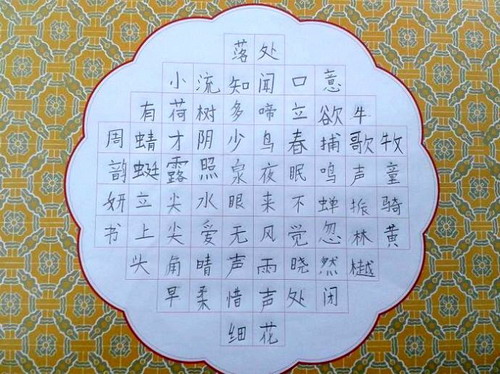 牧童骑黄
牛歌声振林樾
意欲捕鸣蝉忽然闭
口立春眠不觉晓处
处闻啼鸟夜来风雨声花
落知多少泉眼无声惜细
流树阴照水爱晴柔
小荷才露尖尖角早
有蜻蜓立上头
周韵妍书